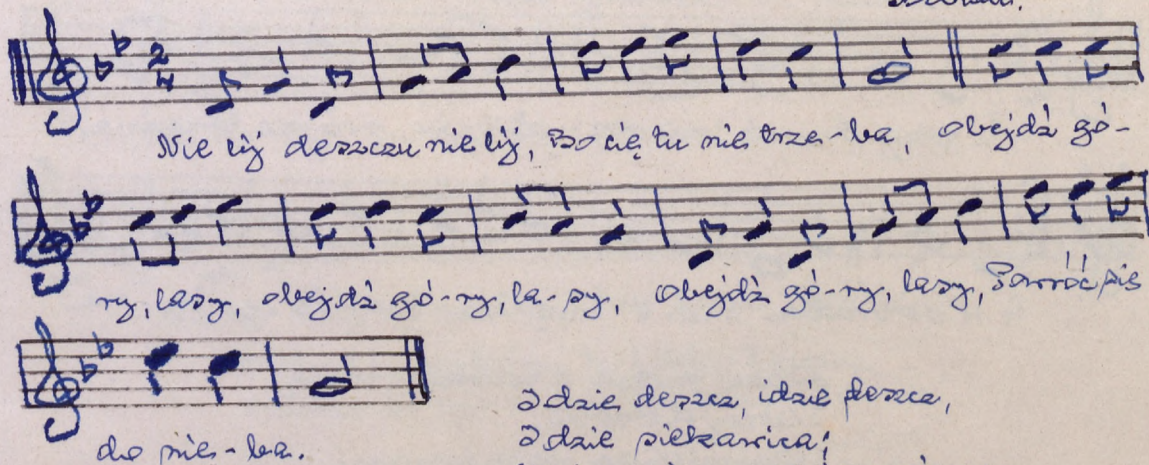 2
4
Nie lij deszczu nie lij, Bo cię tu nie trze-ba, obejdź gó-
ry, lasy, obejdź gó-ry, la-sy, obejdź gó-ry, lasy, Powróć się
do nie-ba.
Idzie deszcz, idzie deszcz,
Idzie siekawica;